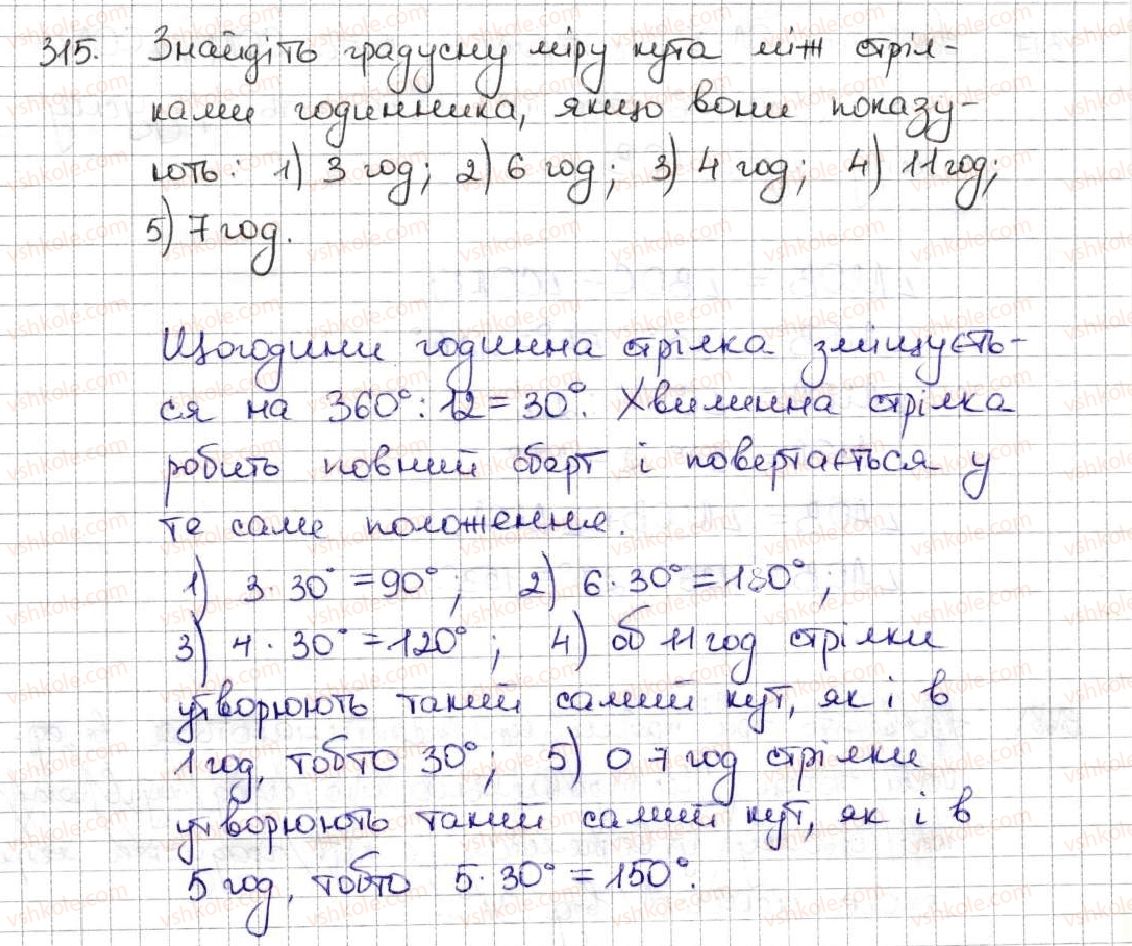 315. Знайдіть градусну міру кута між стріл-
ками годинника, якщо вони показу-
ють: 1) 3 год; 2) 6 год; 3) 4 год; 4) 11 год;
5) 7 год.
Щогодини годинна стрілка зміщуєть-
ся на 360°:12=30°. Хвилинна стрілка
робить повний оберт і повертається у
те саме положення.
1) 3·30°=90°; 2) 6·30°=180°;
3) 4·30°=120°; 4) об 11 год стрілки
утворюють такий самий кут, як і в
1 год, тобто 30°; 5) О 7 год стрілки
утворюють такий самий кут, як і в
5 год, тобто 5·30°=150°.
vshkole.com